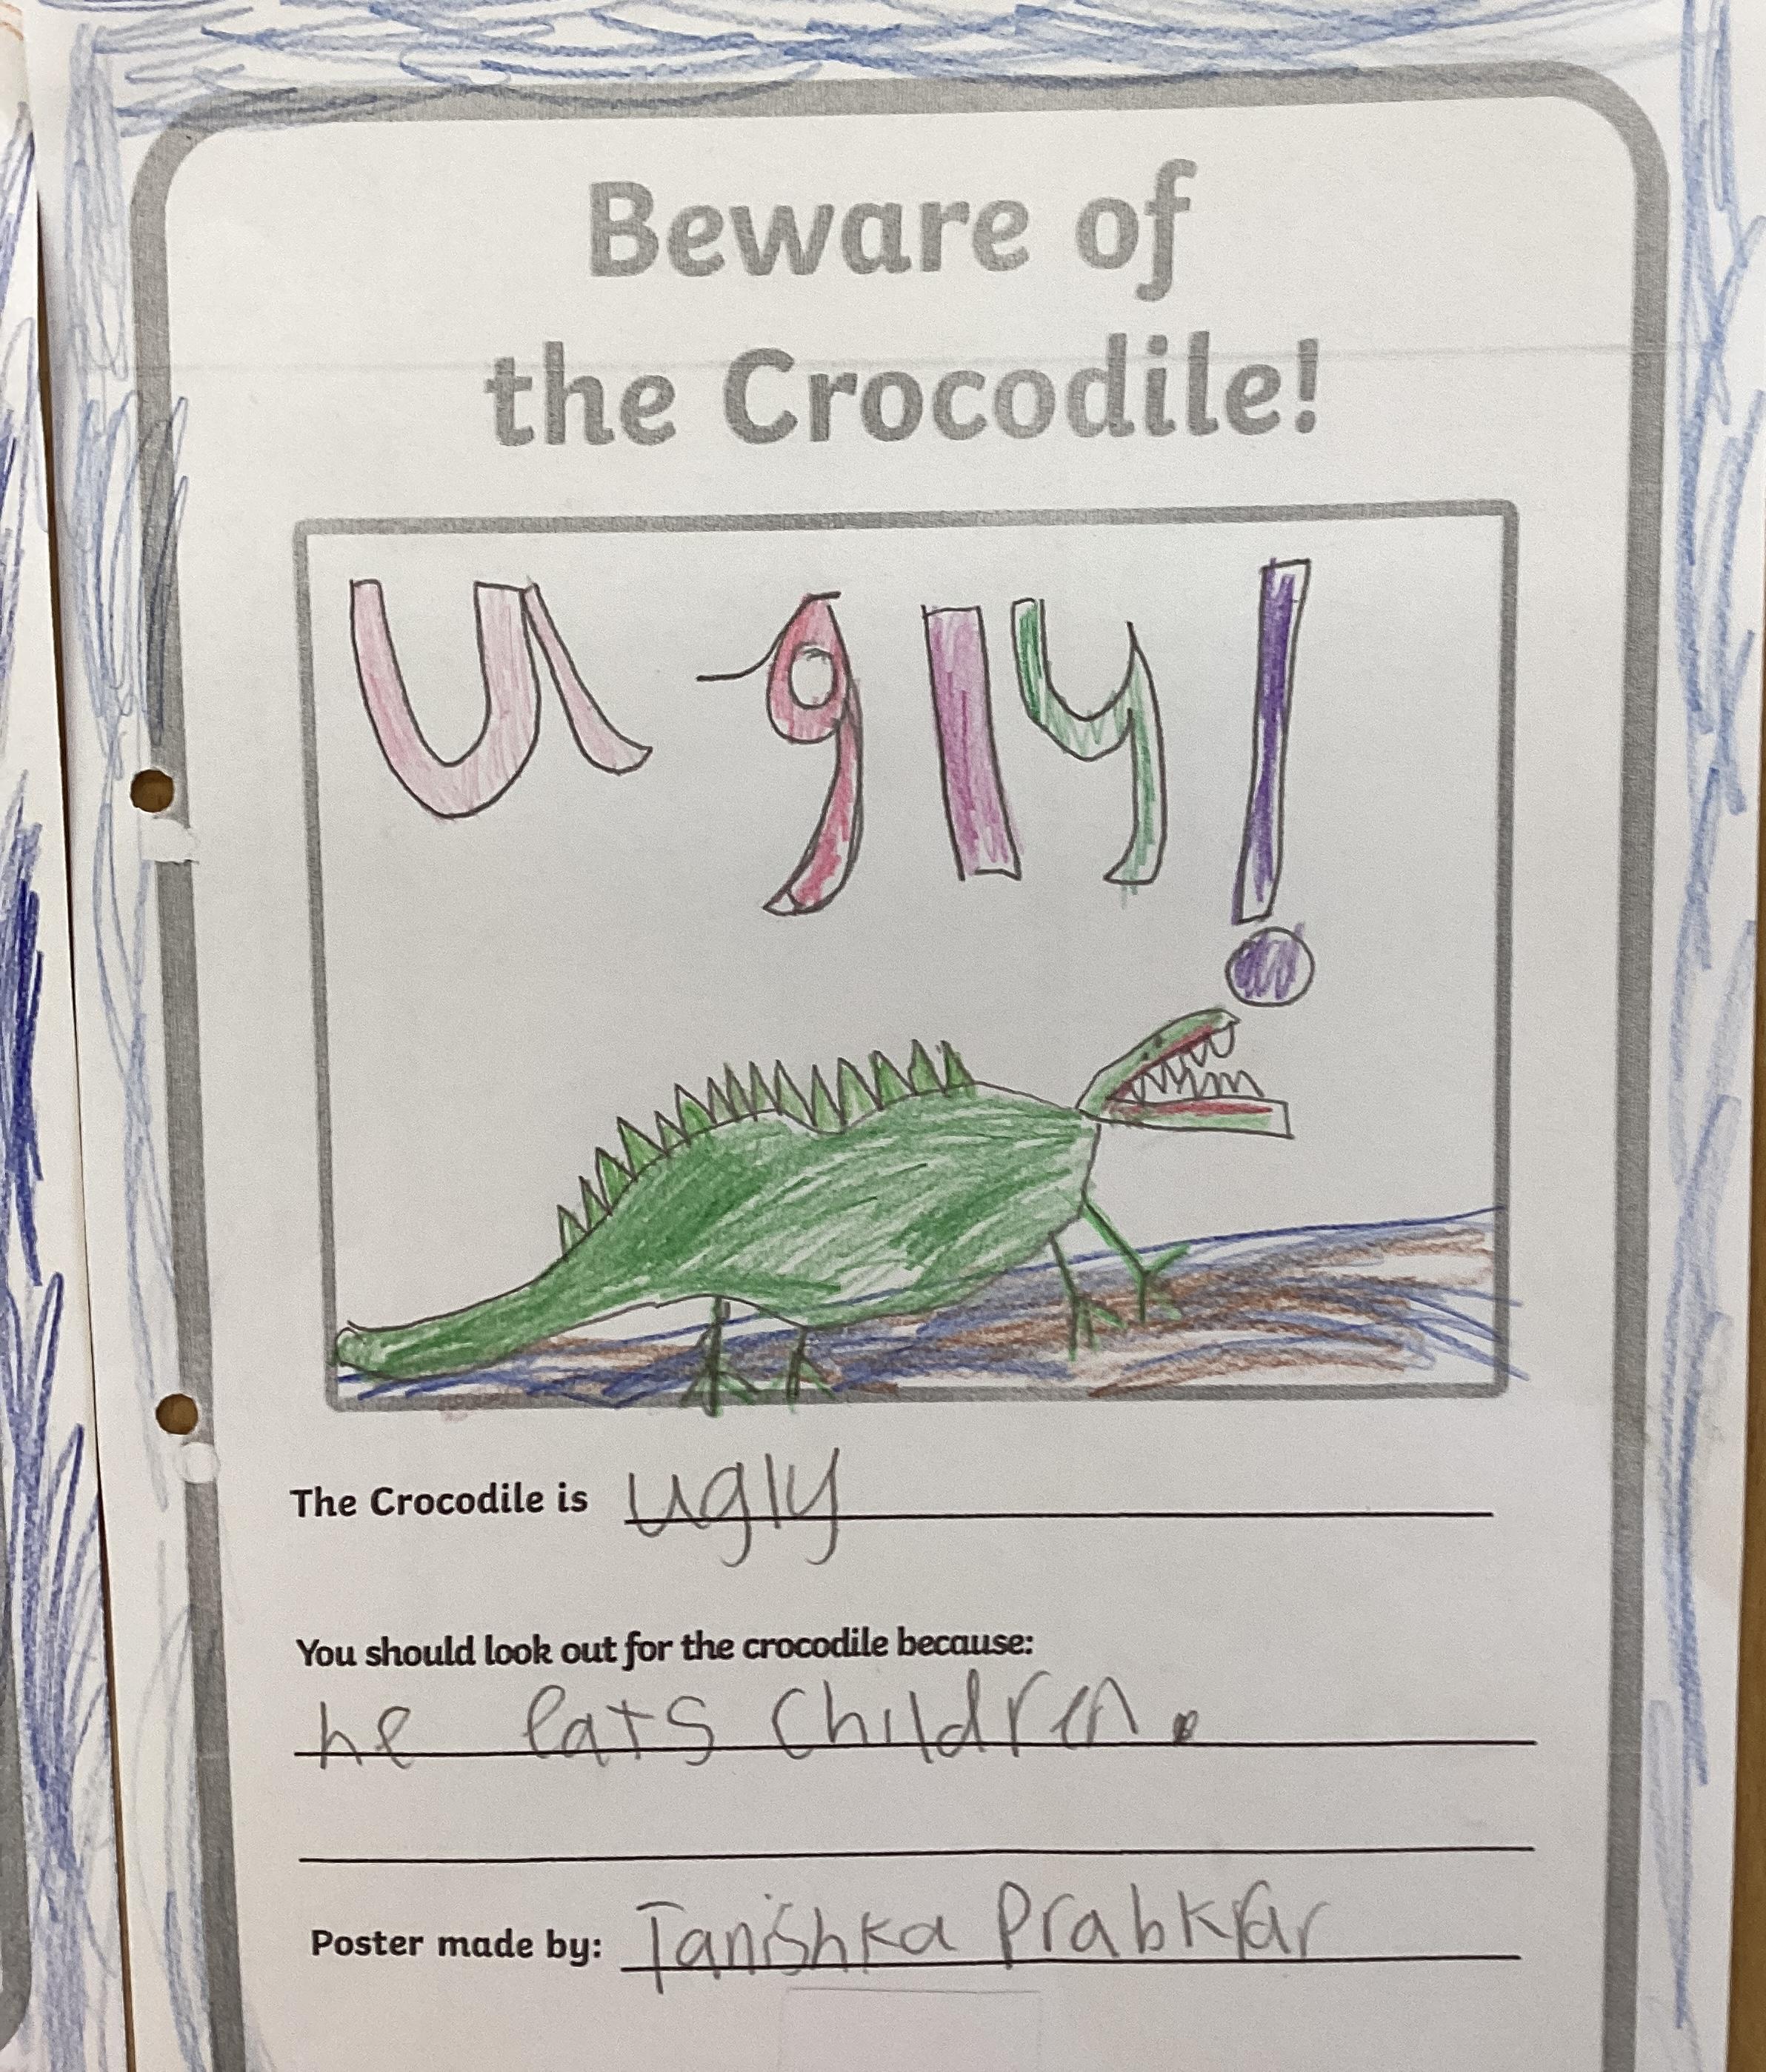 Beware of
the Crocodile!
ugly!
The Crocodile is ugly
You should look out for the crocodile because:
he eats children.
Poster made by: Tanishka Prabkrar